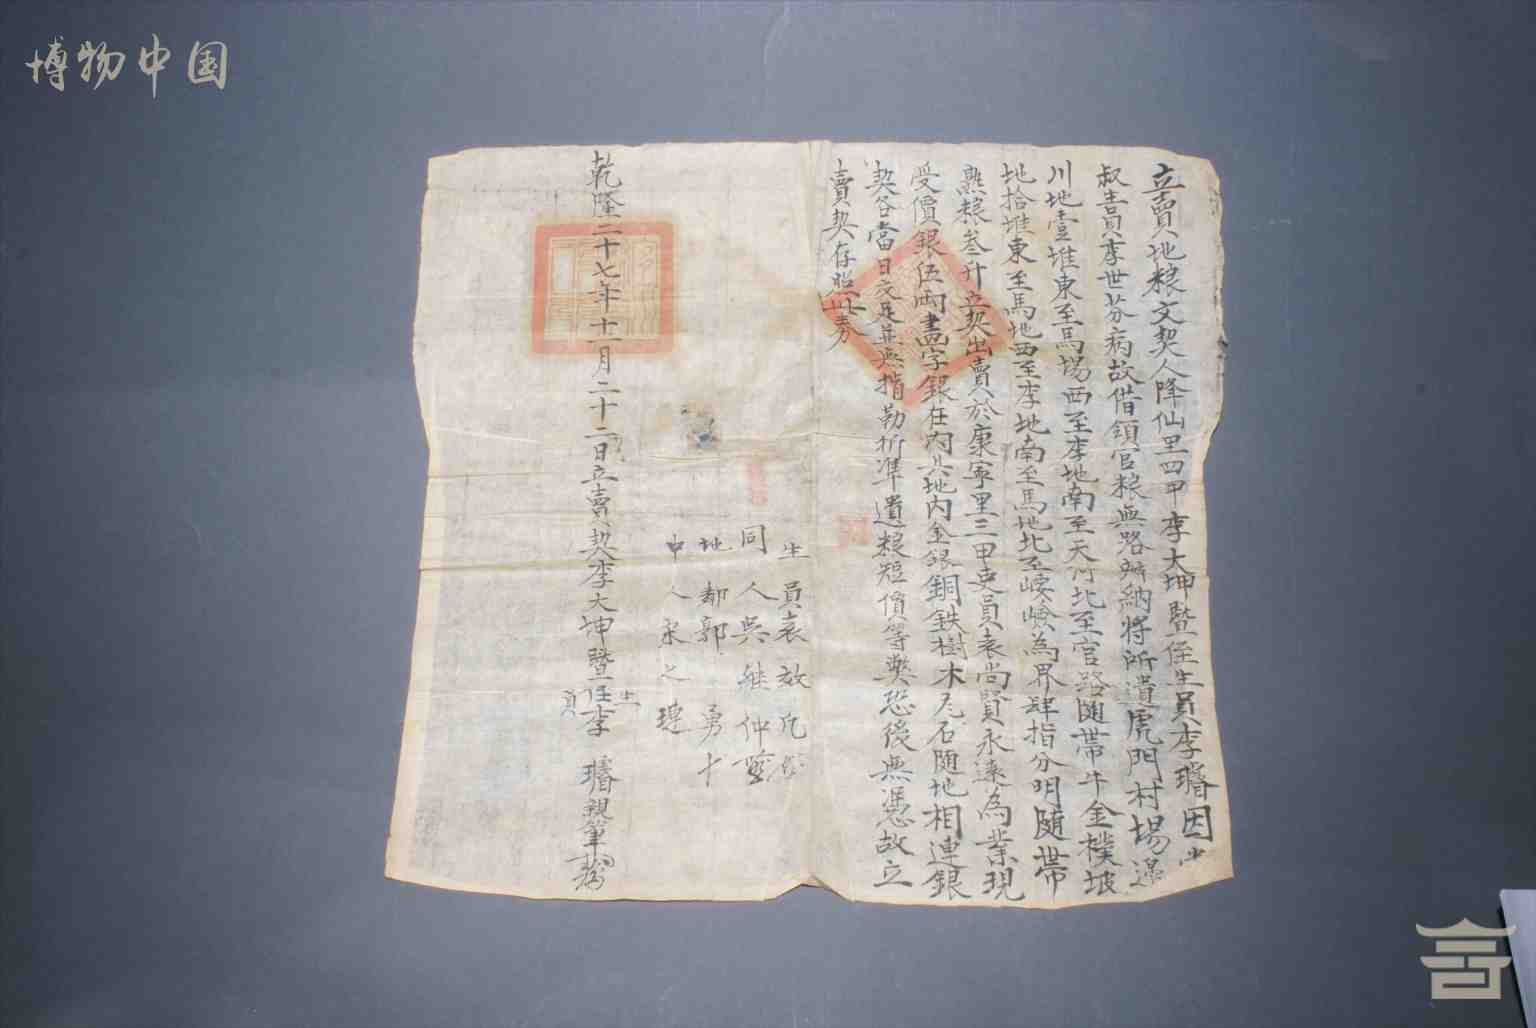 博物中国
立賣地粮文契人降仙里四甲李大坤暨侄生員李璿因
叔生員李世芬病故借領官粮無路辦納將所遺虎門村場邊
川地壹堆東至馬場西至李地南至天河北至官路隨帶牛金樸坡
地拾堆東至馬地西至李地南至馬地北至崚嶮為界肆指分明随帶
熟粮叁升立契出賣於康寧里三甲吏員袁尚賢永遠為業現
受價銀伍兩畫字銀在內其地內金銀銅鉄樹木瓦石随地相連銀
契各當日交足並無指勒折準遺粮短價等獘恐後無憑故立
賣契存照此券
生員袁
同人吳継仲
地 郭 勇十
中人 之璉
乾隆二十七年十一月二十二日立賣契李大坤暨侄生員李 璿親筆